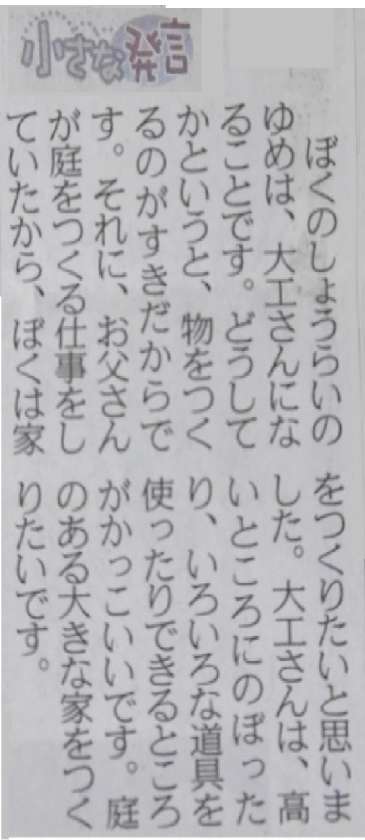 小さな発言
ぼくのしょうらいの
ゆめは、大工さんにな
ることです。どうして
かというと、物をつく
るのがすきだからで
す。それに、お父さん
が庭をつくる仕事をし
ていたから、ぼくは家
をつくりたいと思いま
した。大工さんは、高
いところにのぼった
り、いろいろな道具を
使ったりできるところ
がかっこいいです。庭
のある大きな家をつく
りたいです。